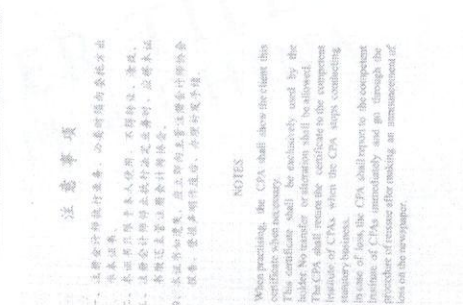 注 意 事 项
一、注册会计师执行业务，必要时须向委托方出
示本证书。
二、本证书只限于本人使用，不得转让、涂改。
三、注册会计师停止执行法定业务时，应将本证
书缴还主管注册会计师协会。
四、本证书如遗失，应立即向主管注册会计师协会
报告，登报声明作废后，办理补发手续。
NOTES
When practising, the CPA shall show the client this
certificate when necessary.
This certificate shall be exclusively used by the
holder. No transfer or alteration shall be allowed.
The CPA shall return the certificate to the competent
Institute of CPAs when the CPA stops conducting
statutory business.
In case of loss, the CPA shall report to the competent
Institute of CPAs immediately and go through the
procedure of reissue after making an announcement of
loss on the newspaper.